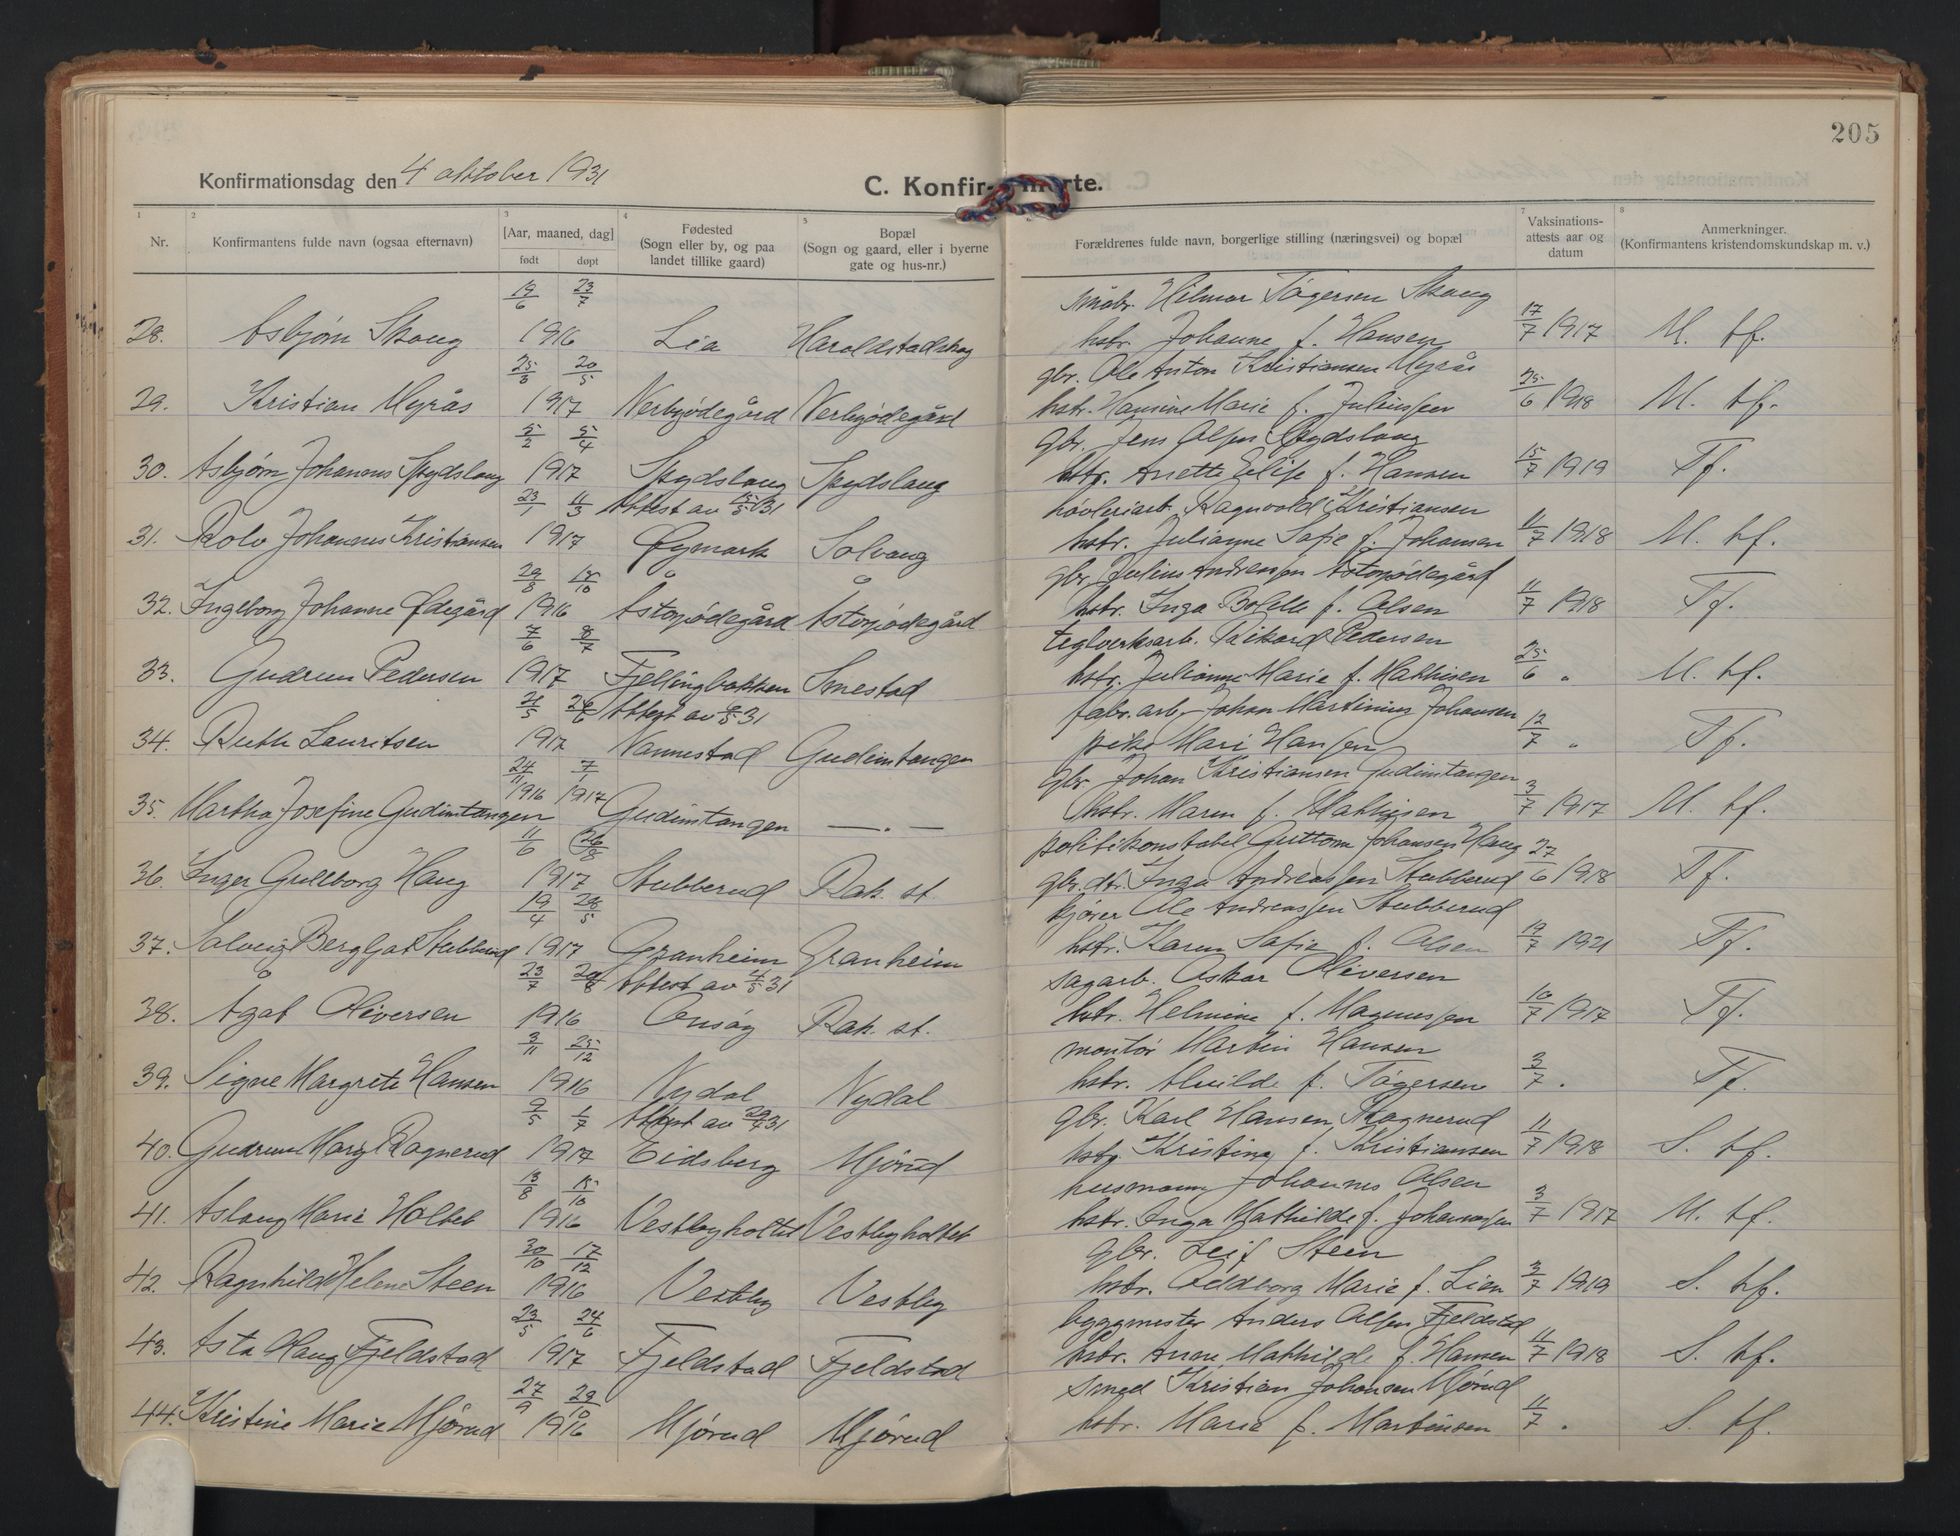 205
Konfirmationsdag den 4 oktober 1931
C. Konfir- merte.
1 2 3 4 5 7 8
Nr. Konfirmantens fulde navn (ogsaa efternavn) [Aar, maaned, dag] født døpt Fødested (Sogn eller by, og paa landet tillike gaard) Bopæl (Sogn og gaard, eller i byerne gate og hus-nr.) Forældrenes fulde navn, borgerlige stilling (næringsvei) og bopæl Vaksinations-attests aar og datum Anmerkninger. (Konfirmantens kristendomskundskap m. v.)
19/6 23/7 småbr. Hilmar Tågersen Skaug
28. Asbjørn Skaug 1916 Lia Haroldstadskog hstr. Johanne f. Hansen 17/7 1917 M. tf.
25/3 20/5 gbr. Ole Anton Kristiansen Myrås
29. Kristian Myrås 1917 Nerbyødegård Nerbyødegård hstr. Hansine Marie f. Juliussen 25/6 1918 M. tf.
5/2 5/4 gbr. Jens Olsen Spydslaug
30. Asbjørn Johannes Spydslaug 1917 Spydslaug Spydslaug hstr. Anette Elise f. Hansen 15/7 1919 Tf.
23/1 11/3 Attest av 15/5 31 høvleriarb. Ragnvald Kristiansen
31. Rolv Johannes Kristiansen 1917 Øymark Solvang hstr. Julianne Sofie f. Johansen 11/7 1918 M. tf.
29/8 15/10 gbr. Julius Andreassen Åstorpødegård
32. Ingeborg Johanne Ødegård 1916 Åstorpødegård Åstorpødegård hstr. Inga Bolette f. Olsen 11/7 1918 Tf.
7/6 8/7 teglverksarb. Rikard Pedersen
33. Gudrun Pedersen 1917 Fjellingbakken Smestad hstr. Julianne Marie f. Mathisen 25/6 " M. tf.
21/5 26/6 Attest av 31 fabr.arb. Johan Martinius Johansen
34. Ruth Lauritsen 1917 Nannestad Gudimtangen pike Mari Hansen 12/7 " Tf.
24/11 7/1 gbr. Johan Kristiansen Gudimtangen
35. Martha Josefine Gudimtangen 1916 1917 Gudimtangen —„— hstr. Maren f. Mathisen 3/7 1917 M. tf.
11/6 26/8 politikonstabel Guttorm Johansen Haug
36. Inger Gullborg Haug 1917 Stubberud Rak. st. gbr.dtr. Inga Andreassen Stubberud 27/6 1918 Tf.
19/4 28/5 kjører Ole Andreassen Stubberud
37. Solveig Bergljot Stubberud 1917 Granheim Granheim hstr. Karen Sofie f. Olsen 19/7 1921 Tf.
23/7 20/8 Attest av 4/5 31 sagarb. Oskar Oliversen
38. Ågot Oliversen 1916 Onsøy Rak. st. hstr. Helmine f. Magnussen 10/7 1917 Tf.
3/11 25/12 montør Martin Hansen
39. Signe Margrete Hansen 1916 Nydal Nydal hstr. Alvilde f. Tågersen 3/7 " Tf.
9/5 1/7 Attest av 31 gbr. Karl Hansen Ragnerud
40. Gudrun Mary Ragnerud 1917 Eidsberg Mjørud hstr. Kristine f. Kristiansen 11/7 1918 S. tf.
13/8 15/10 husmann Johannes Olsen
41. Aslaug Marie Holtet 1916 Vestbyholtet Vestbyholtet hstr. Inga Mathilde f. Johannessen 3/7 1917 M. tf.
30/10 17/12 gbr. Leif Steen
42. Ragnhild Helene Steen 1916 Vestby Vestby hstr. Oddborg Marie f. Lien 3/7 1919 S. tf.
23/5 24/6 byggmester Anders Olsen Fjeldstad
43. Asta Olaug Fjeldstad 1917 Fjeldstad Fjeldstad hstr. Anne Mathilde f. Hansen 11/7 1918 S. tf.
27/9 29/10 smed Kristian Johansen Mjørud
44. Kristine Marie Mjørud 1916 Mjørud Mjørud hstr. Marie f. Martinsen 11/7 " S. tf.